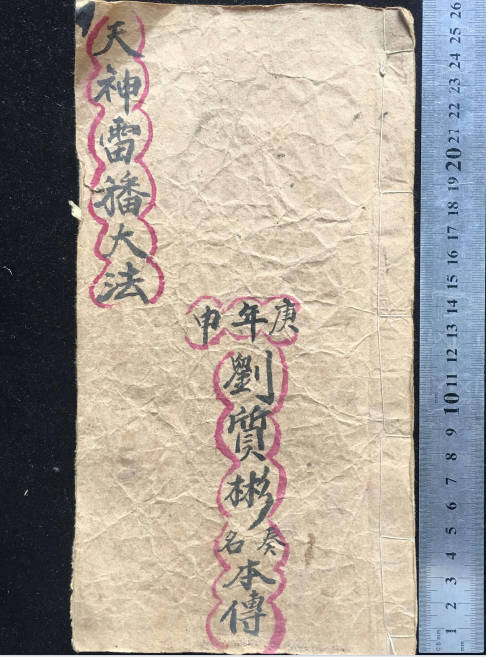 天神雷播大法
庚申年
劉質彬
奏名
本傳
26
25
24
23
22
21
20
19
18
17
16
15
14
13
12
11
10
9
8
7
6
5
4
3
2
1